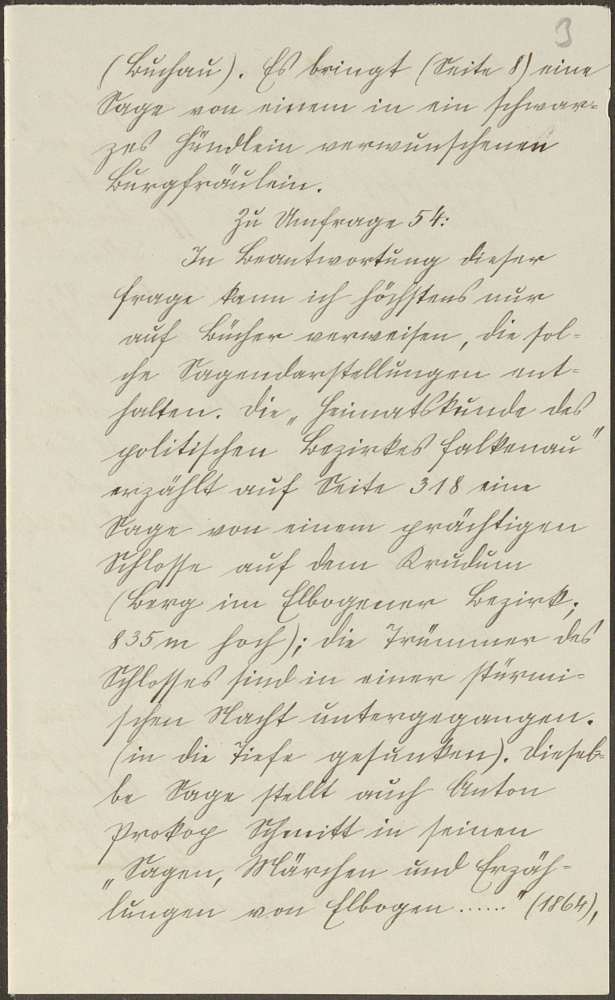 3
(Buchau). Es bringt (Seite 8) eine
Sage von einem in ein schwar-
zes Hündlein verwunschenen
Burgfräulein.
Zu Umfrage 54:
In Beantwortung dieser
Frage kann ich höchstens nur
auf Bücher verweisen, die sol-
che Sagendarstellungen ent-
halten. Die „Heimatskunde des
politischen Bezirkes Falkenau"
erzählt auf Seite 318 eine
Sage von einem prächtigen
Schlosse auf dem Krudum
(Berg im Elbogener Bezirk;
835 m hoch); die Trümmer des
Schlosses sind in einer stürmi-
schen Nacht untergegangen.
(in die Tiefe gesunken). Diesel-
be Sage stellt auch Anton
Prokop Schmitt in seinen
„Sagen, Märchen und Erzäh-
lungen von Elbogen ......" (1864),